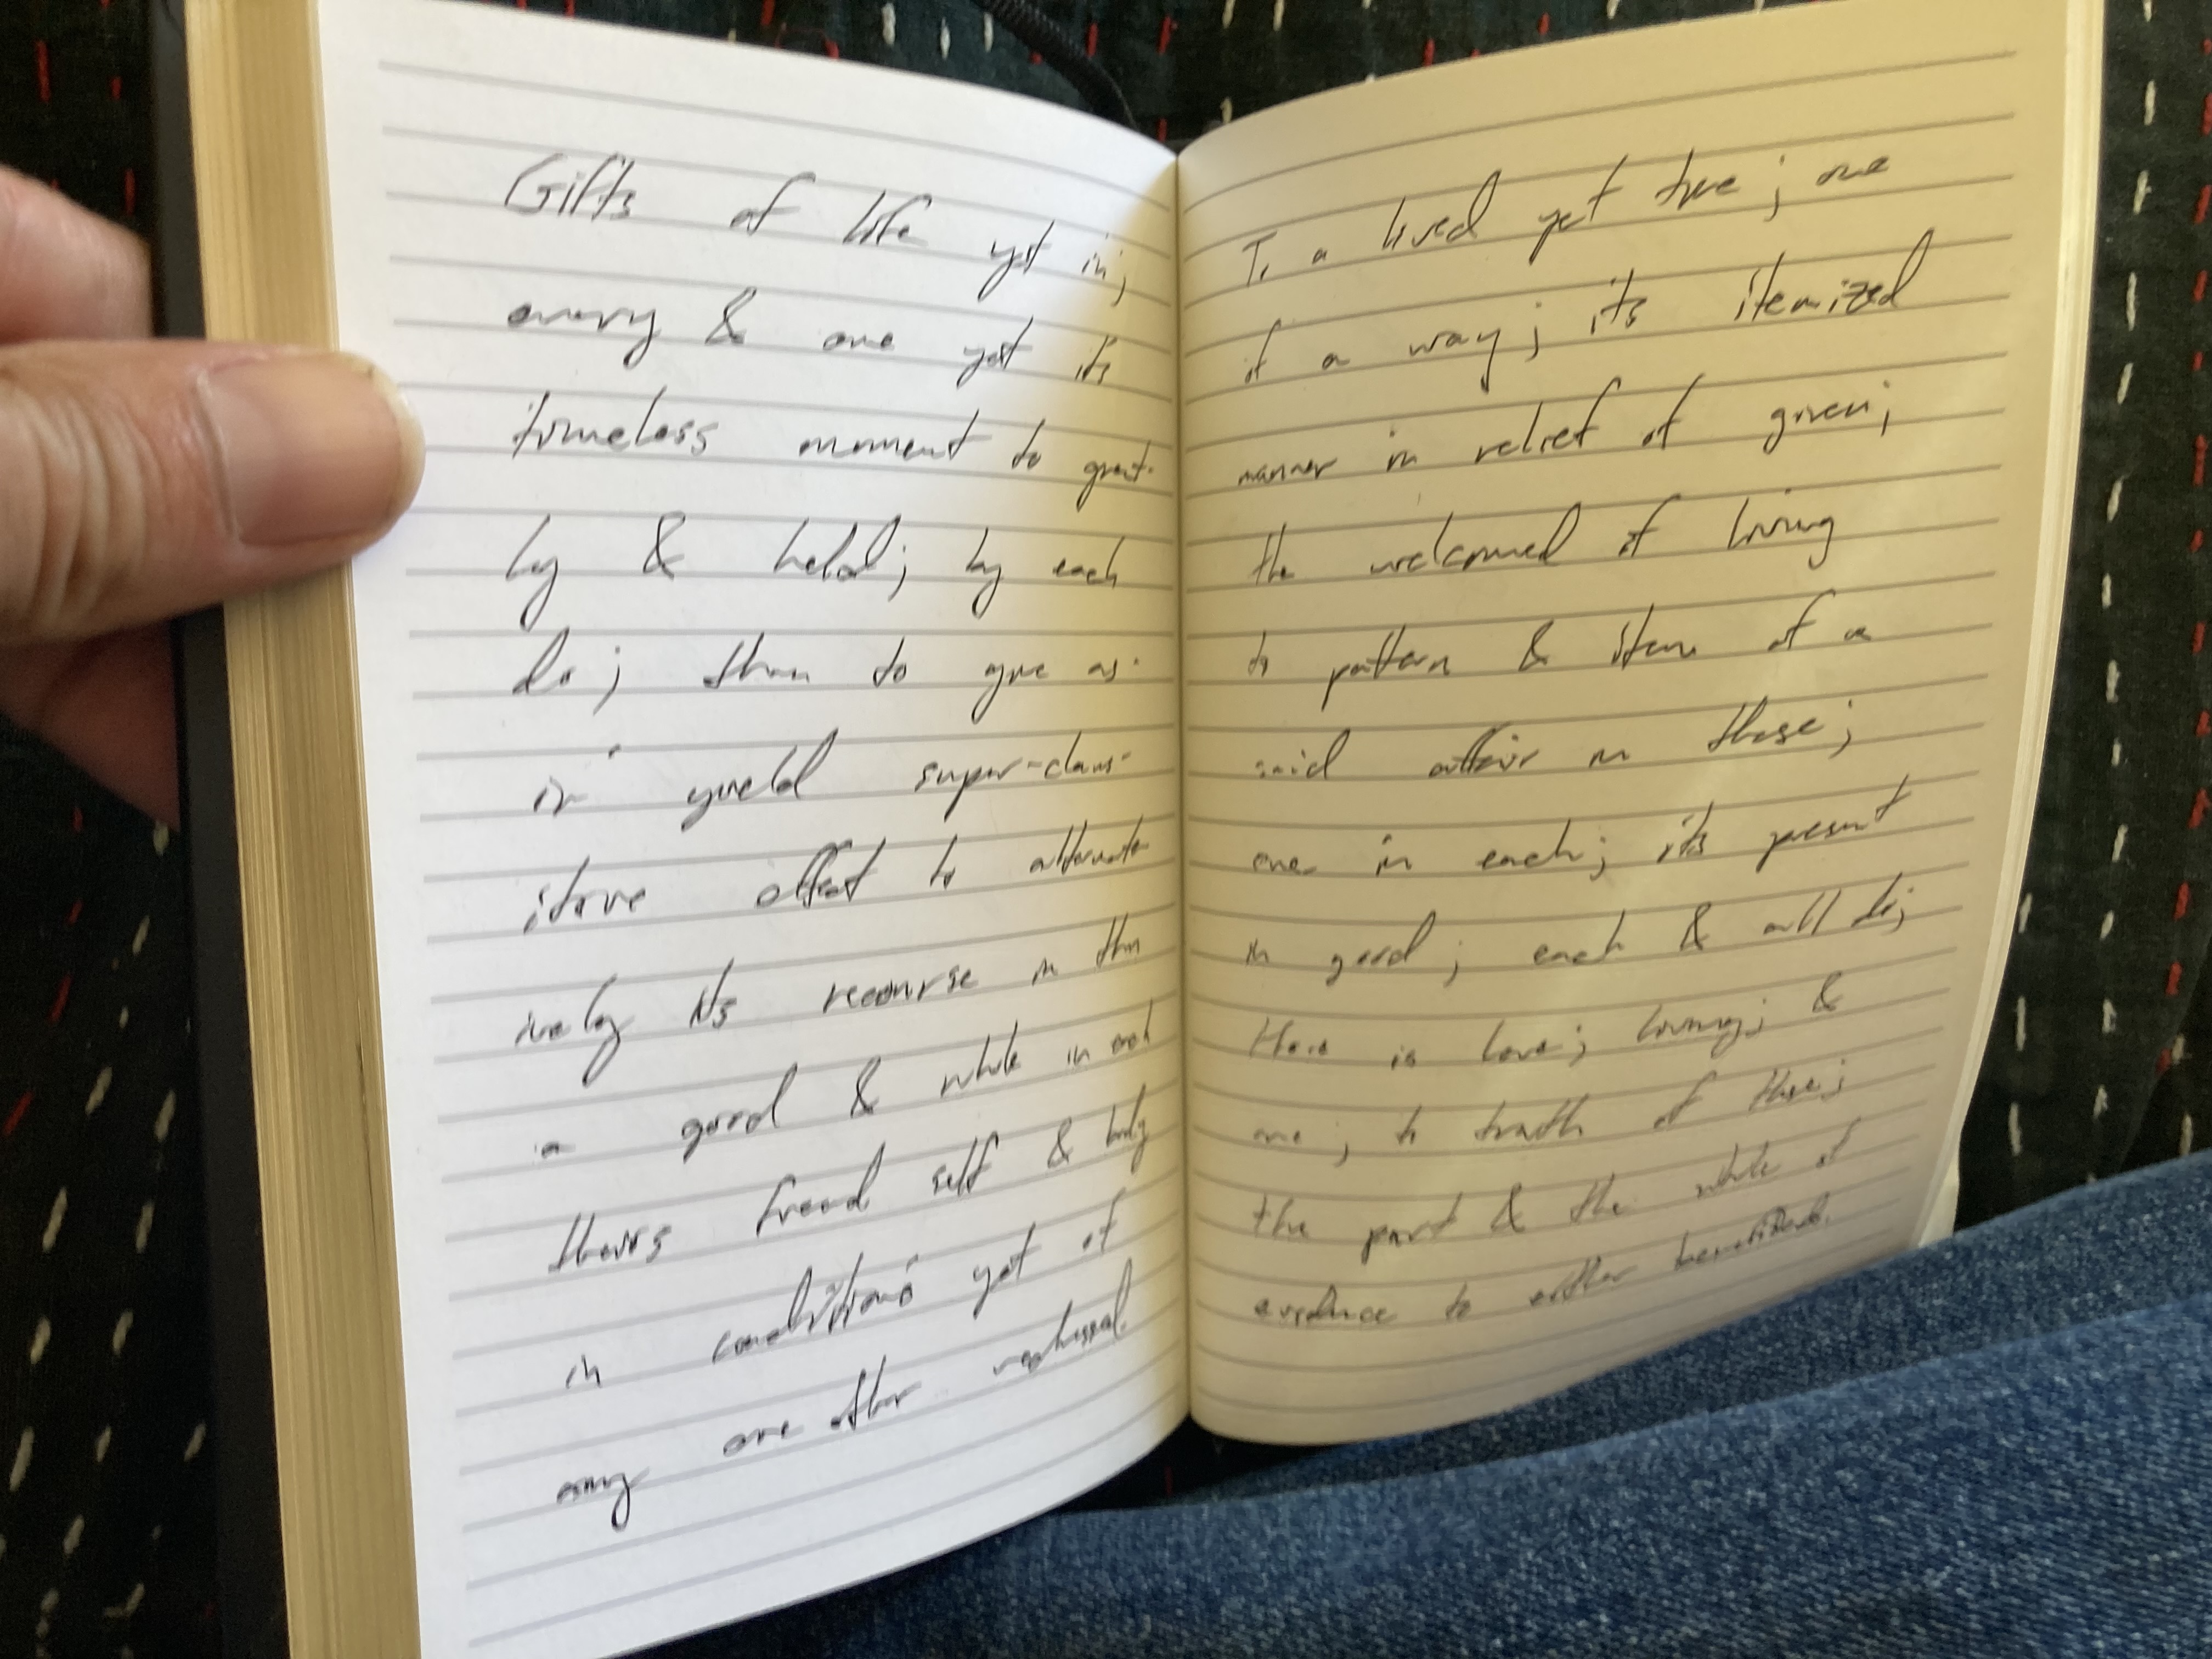 Gifts of life yet in;
every & one yet its
timeless moment to great-
ly & held; by each
do; then to give as
in yield super-claus-
itive effect to alternate-
ively its recourse in the
a good & while in each
theirs freed self & body
in conditions yet of
any one other
To a lived yet true; one
of a way; its itemized
manner in relief of given;
the welcomed of living
to pattern & item of a
said affair in these;
one in each; its present
in good; each & all do;
there is love; living; &
one; to truth of these;
the part & the whole of
evidence to either